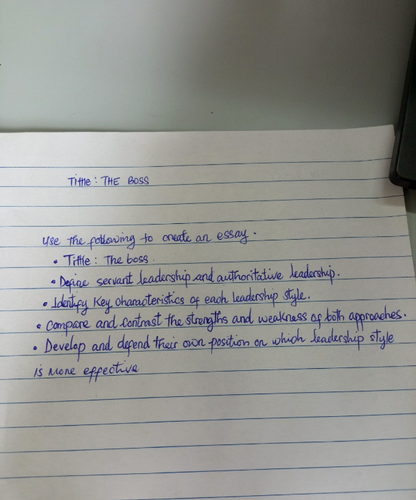 Tittle : THE BOSS
Use the following to create an essay.
• Tittle : The boss
• Define servant leadership and authoritative leadership.
• Identify key characteristics of each leadership style.
• Compare and contrast the strengths and weakness of both approaches.
• Develop and defend their own position on which leadership style
is more effective